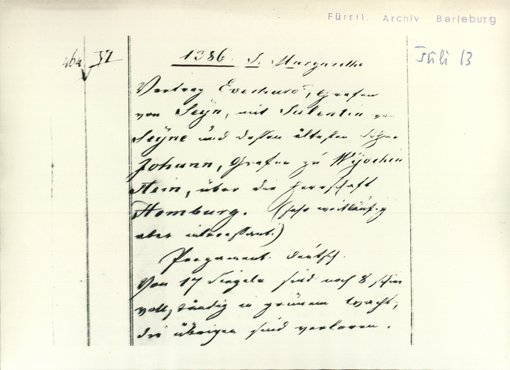 Fürstl. Archiv Berleburg
37
1386 S. Margarethe
Juli 13
Vertrag Everhard, Grafen
von Seyn, mit Salentin von
Seyne und dessen ältesten Sohne
Johann, Grafen zu
stein, über die Herrschaft
Homburg. (sehr weitläufig
aber interessant.)
Pergament. deutsch.
Von 17 Siegeln sind noch 8 schön
vollständig in grünem Wachs,
die übrigen sind verloren.